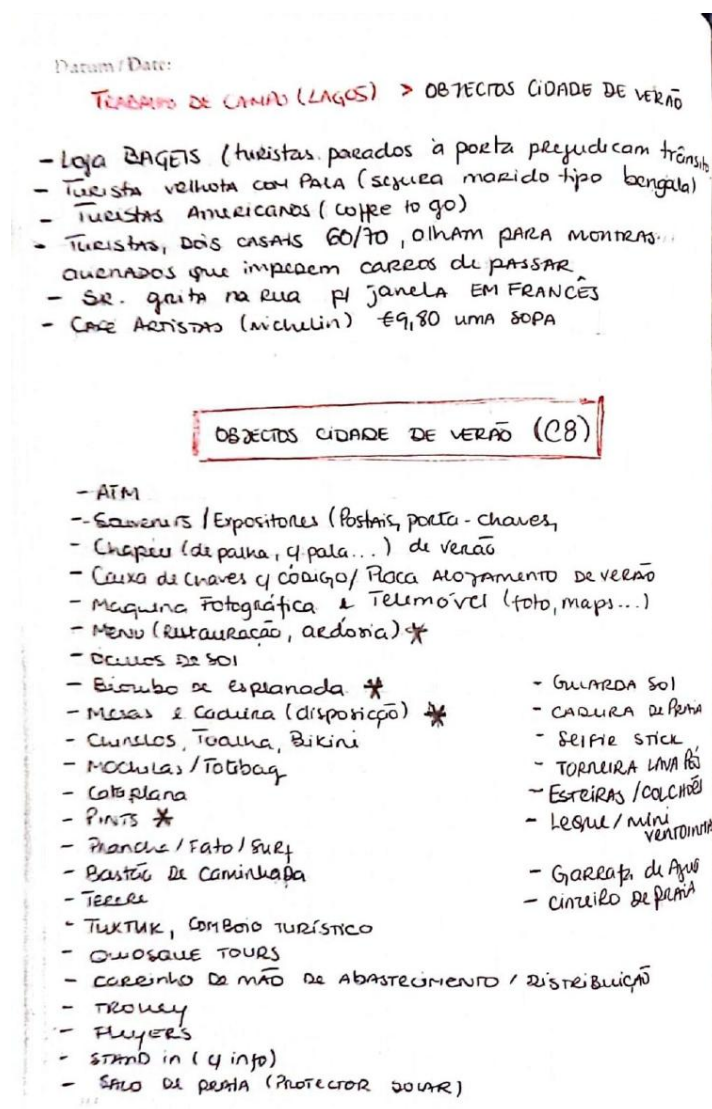 Datum / Date:
TRABALHO DE CAMPO (LAGOS) > OBJECTOS CIDADE DE VERÃO
- Loja BAGELS (turistas parados à porta prejudicam trânsito
- Turista velhota com PALA (segura marido tipo bengala)
- Turistas Americanos (coffee to go)
- Turistas, DOIS CASAIS 60/70, olham PARA MONTRAS...
que impedem carros de PASSAR
- SR. grita na rua p/ janela EM FRANCÊS
- CAFÉ ARTISTAS (Michelin) €9,80 UMA SOPA
OBJECTOS CIDADE DE VERÃO (C8)
- ATM
- Souvenirs / Expositores (Postais, porta-chaves,
- Chapéu (de palha, c/ pala...) de verão
- Caixa de chaves c/ CÓDIGO / Placa ALOJAMENTO DE VERÃO
- Maquina Fotográfica e Telemóvel (foto, maps...)
- MENU (Restauração, ardósia) *
- ÓCULOS DE SOl
- Biombo de esplanada *
- Mesas e Cadeira (disposição) *
- Chinelos, Toalha, Bikini
- MOCHILAS / Totebag
- Cataplana
- PINTS *
- Prancha / Fato / SURF
- Bastão de Caminhada
- TERERE
- TUKTUK, COMBOIO TURÍSTICO
- QUIOSQUE TOURS
- CARRINHO DE MÃO DE ABASTECIMENTO / DISTRIBUIÇÃO
- TROLLEY
- FLLYERS
- STAND in (c/ info)
- SACO DE PRAIA (PROTECTOR SOLAR)
- GUARDA SOl
- CADEIRA DE PRAIA
- SElFIE STICK
- TORNEIRA LAVA PÉS
- ESTEIRAS / COLCHÕES
- Leque / mini VENTOINHA
- GARRAFA de Água
- CINZEIRO DE PRAIA